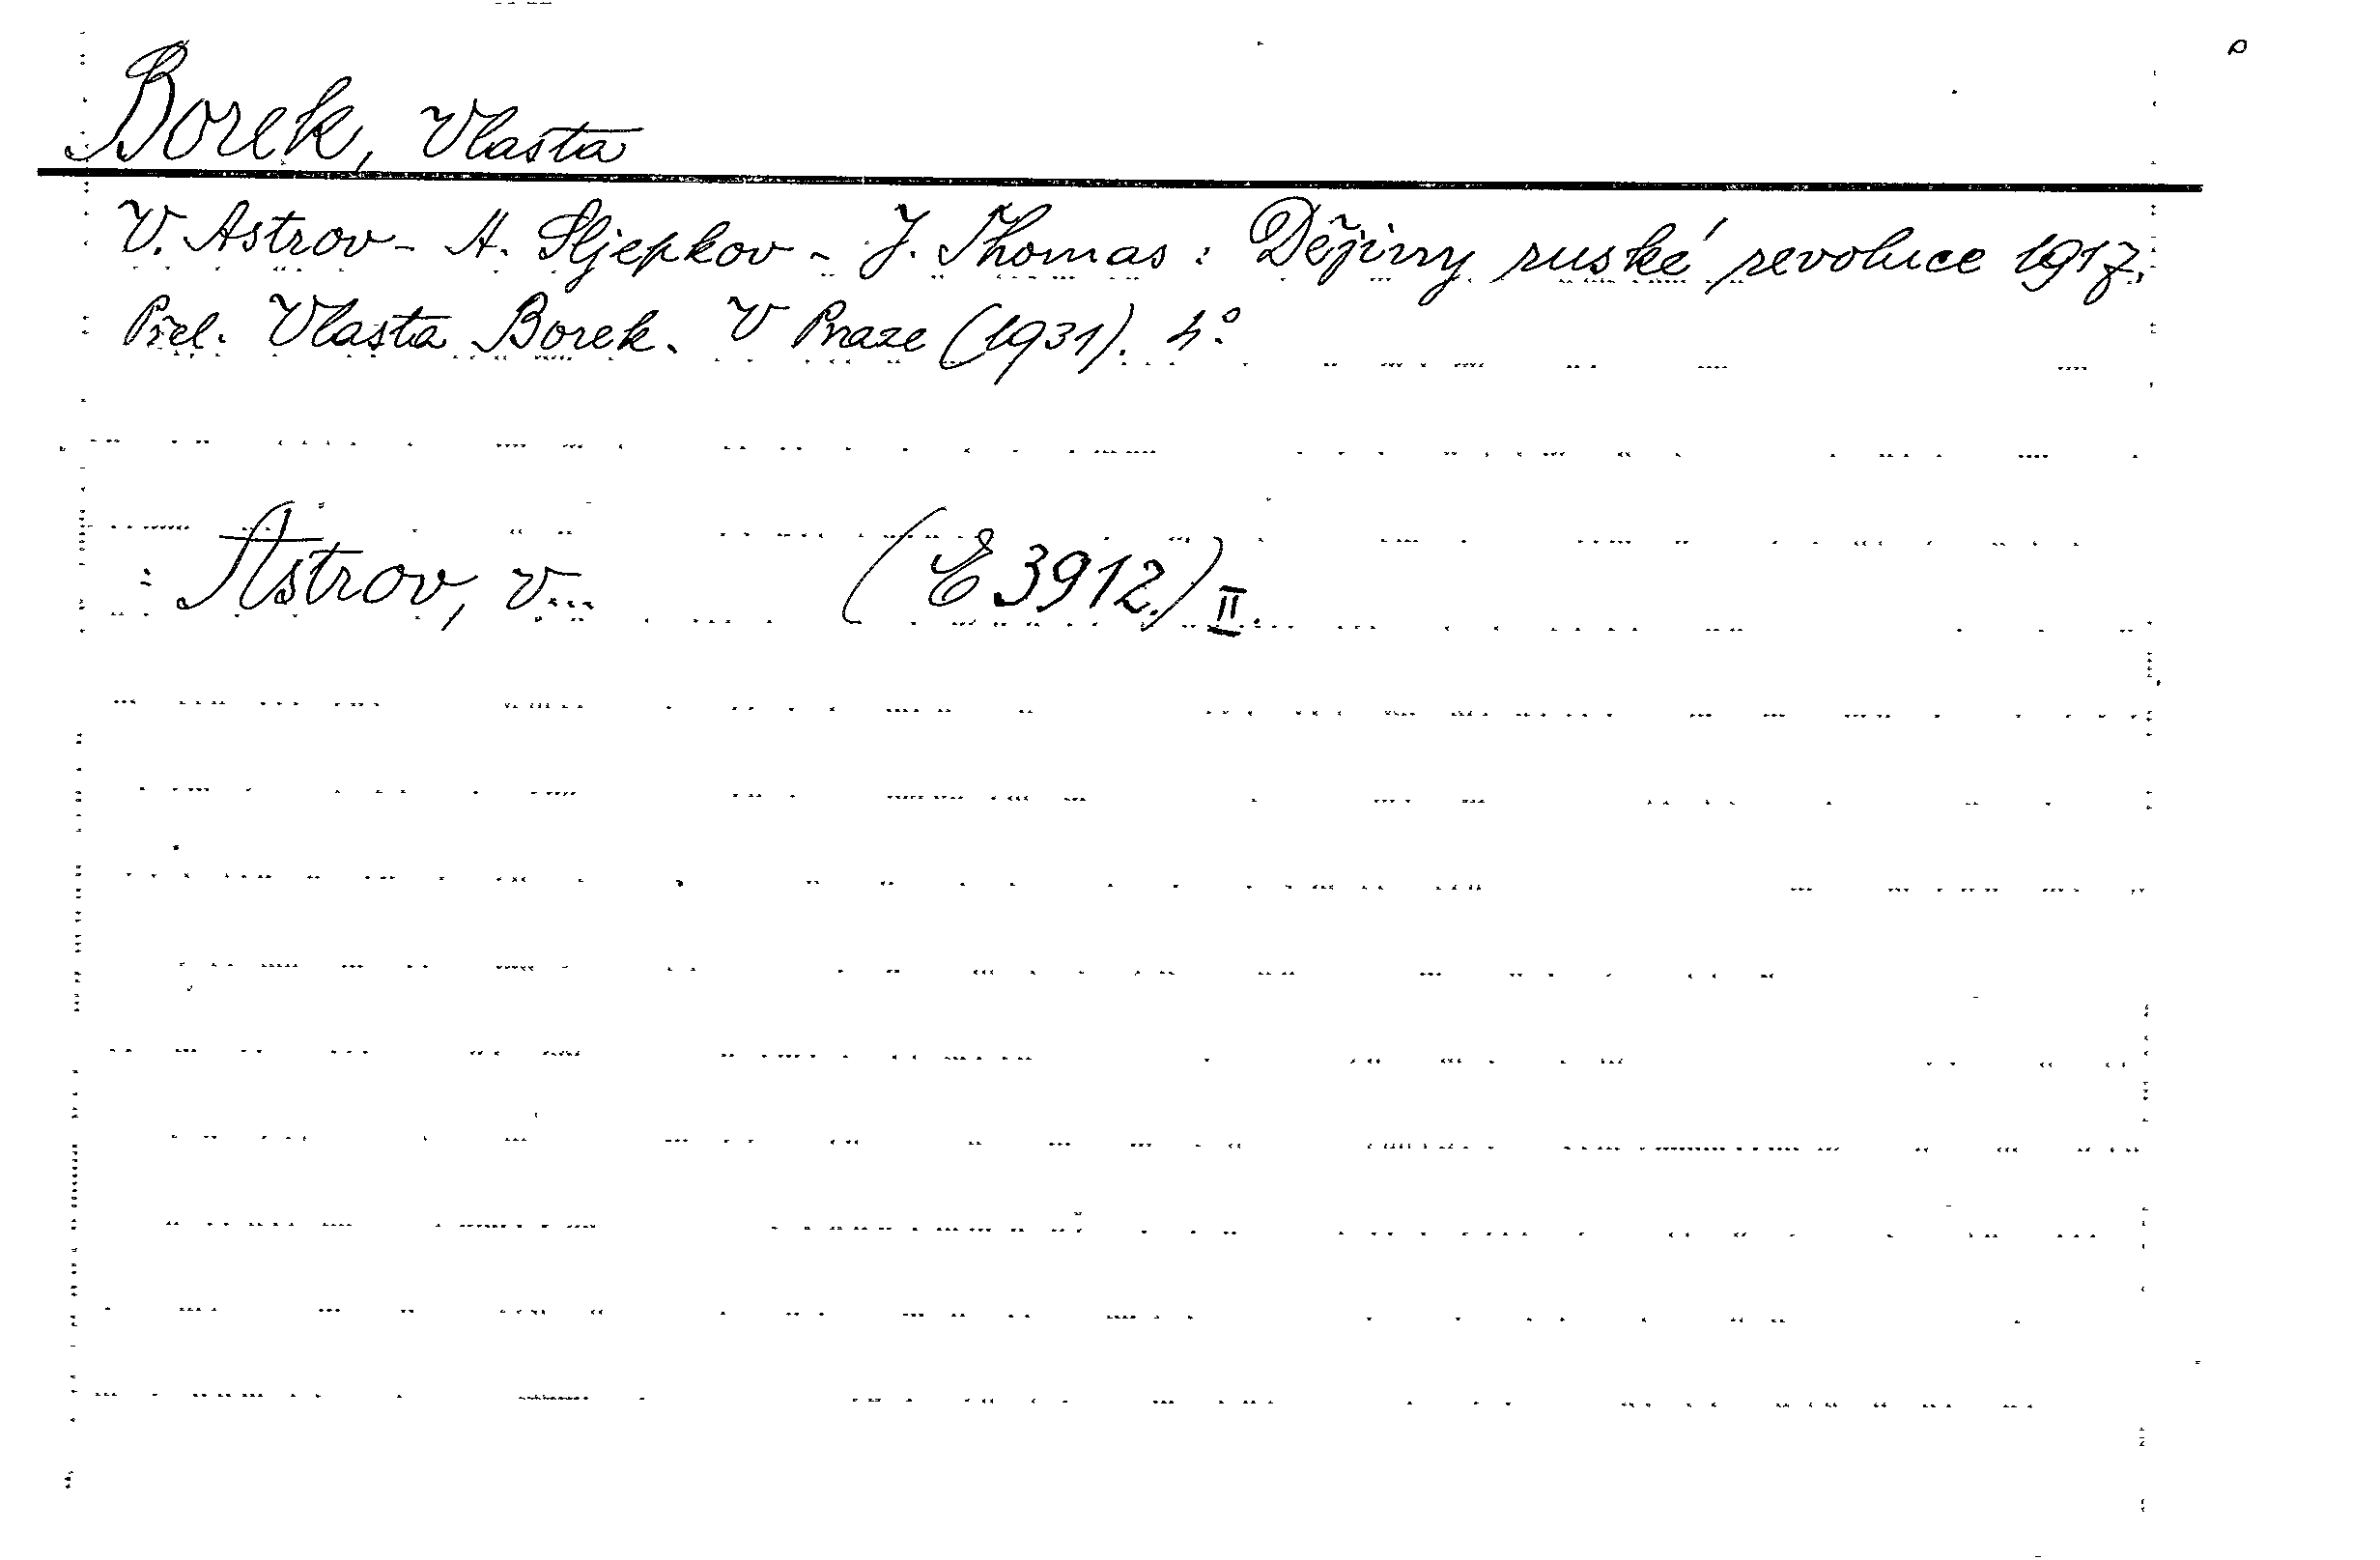 Borek, Vlasta
V. Astrov - A. Sljepkov - J. Thomas : Dějiny ruské revoluce 1917.
Přel. Vlasta Borek. V Praze (1931). 4°.
: Astrov, V... (E 3912.) II.